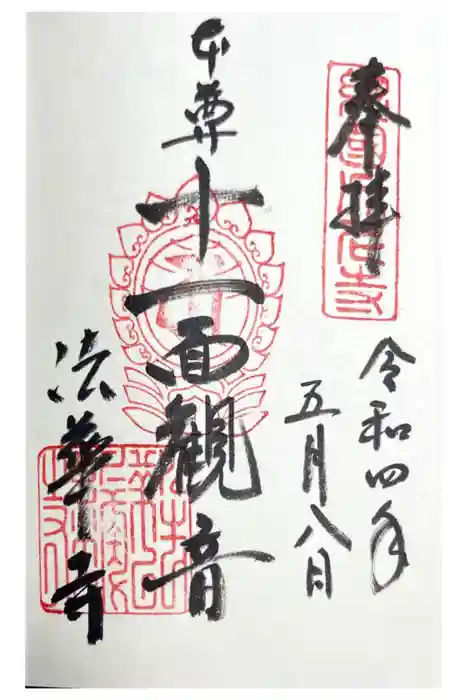 奉拝
令和四年
五月八日
本尊
十一面観音
法華寺